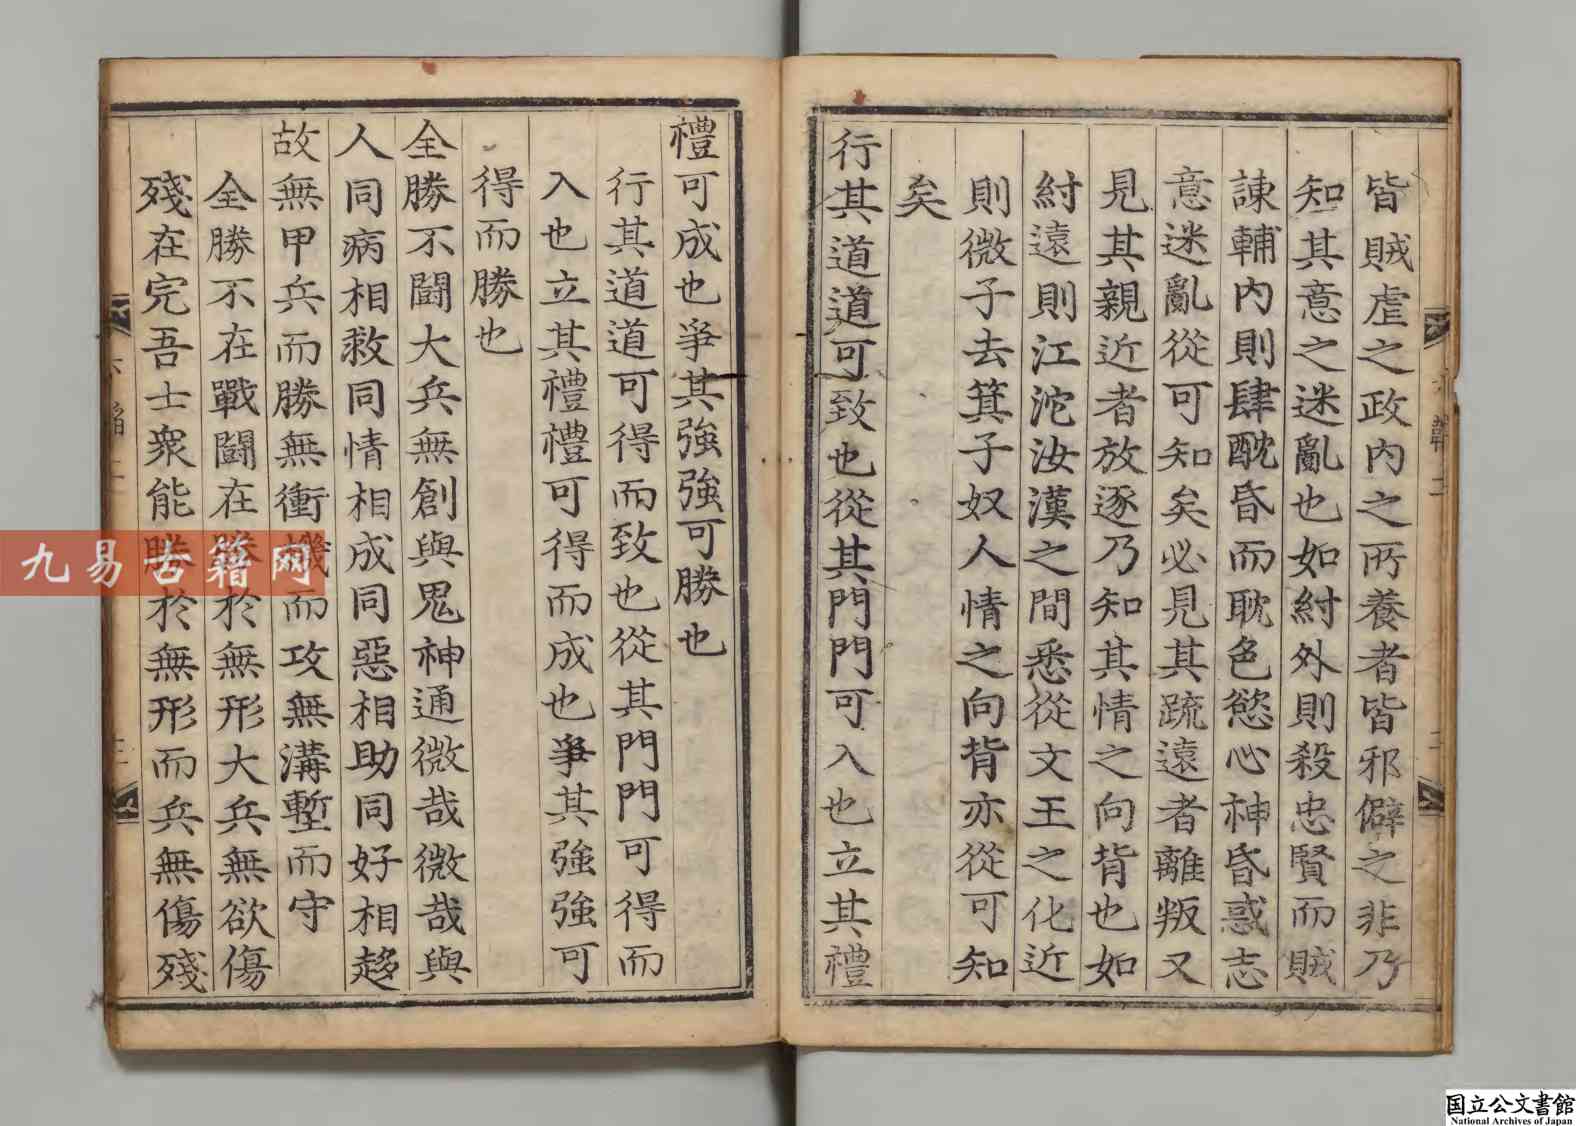 皆賊虐之政内之所養者皆邪僻之非乃
知其意之迷亂也如紂外則殺忠賢而賊
諫輔内則肆酖昏而耽色慾心神昏惑志
意迷亂從可知矣必見其疏遠者離叛又
見其親近者放逐乃知其情之向背也如
紂遠則江沱汝漢之間悉從文王之化近
則微子去箕子奴人情之向背亦從可知
矣
行其道道可致也從其門門可入也立其禮
禮可成也爭其強強可勝也
行其道道可得而致也從其門門可得而
入也立其禮禮可得而成也爭其強強可
得而勝也
全勝不鬪大兵無創與鬼神通微哉微哉與
人同病相救同情相成同惡相助同好相趍
故無甲兵而勝無衝機而攻無溝塹而守
全勝不在戰鬪在勝於無形大兵無欲傷
殘在完吾士衆能勝於無形而兵無傷殘
九易古籍网
国立公文書館
National Archives of Japan